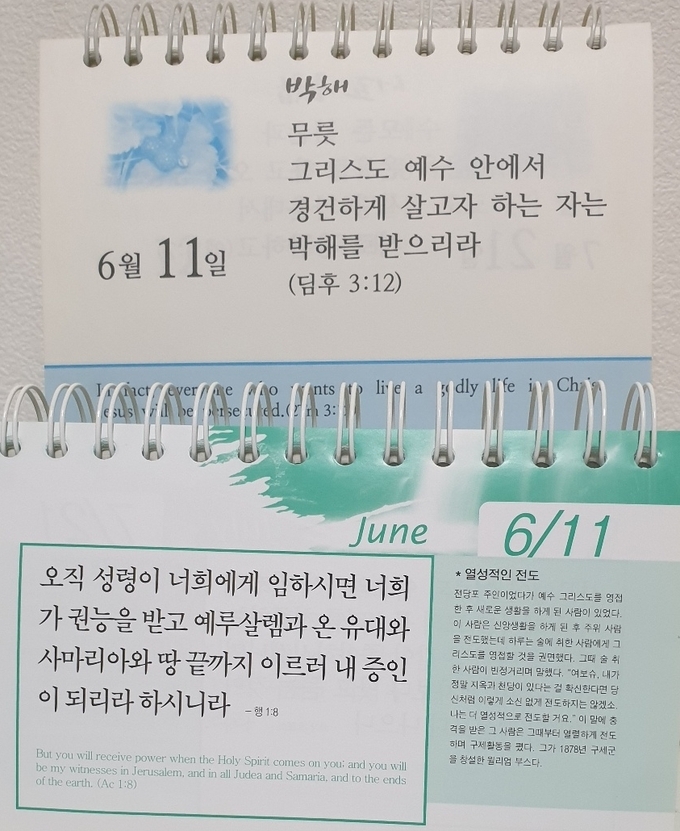 박해
무릇
그리스도 예수 안에서
경건하게 살고자 하는 자는
박해를 받으리라
(딤후 3:12)
6월 11일
In fact, everyone who wants to live a godly life in Christ
Jesus will be persecuted. (2Tim 3:12)
June
6/11
오직 성령이 너희에게 임하시면 너희
가 권능을 받고 예루살렘과 온 유대와
사마리아와 땅 끝까지 이르러 내 증인
이 되리라 하시니라 -행 1:8
But you will receive power when the Holy Spirit comes on you; and you will
be my witnesses in Jerusalem, and in all Judea and Samaria, and to the ends
of the earth. (Ac 1:8)
* 열성적인 전도
전당포 주인이었다가 예수 그리스도를 영접
한 후 새로운 생활을 하게 된 사람이 있었다.
이 사람은 신앙생활을 하게 된 후 주위 사람
을 전도했는데 하루는 술에 취한 사람에게 그
리스도를 영접할 것을 권면했다. 그때 술 취
한 사람이 빈정거리며 말했다. "여보슈, 내가
정말 지옥과 천당이 있다는 걸 확신한다면 당
신처럼 이렇게 소신 없게 전도하지는 않겠소.
나는 더 열성적으로 전도할 거요." 이 말에 충
격을 받은 그 사람은 그때부터 열렬하게 전도
하며 구제활동을 폈다. 그가 1878년 구세군
을 창설한 윌리엄 부스다.